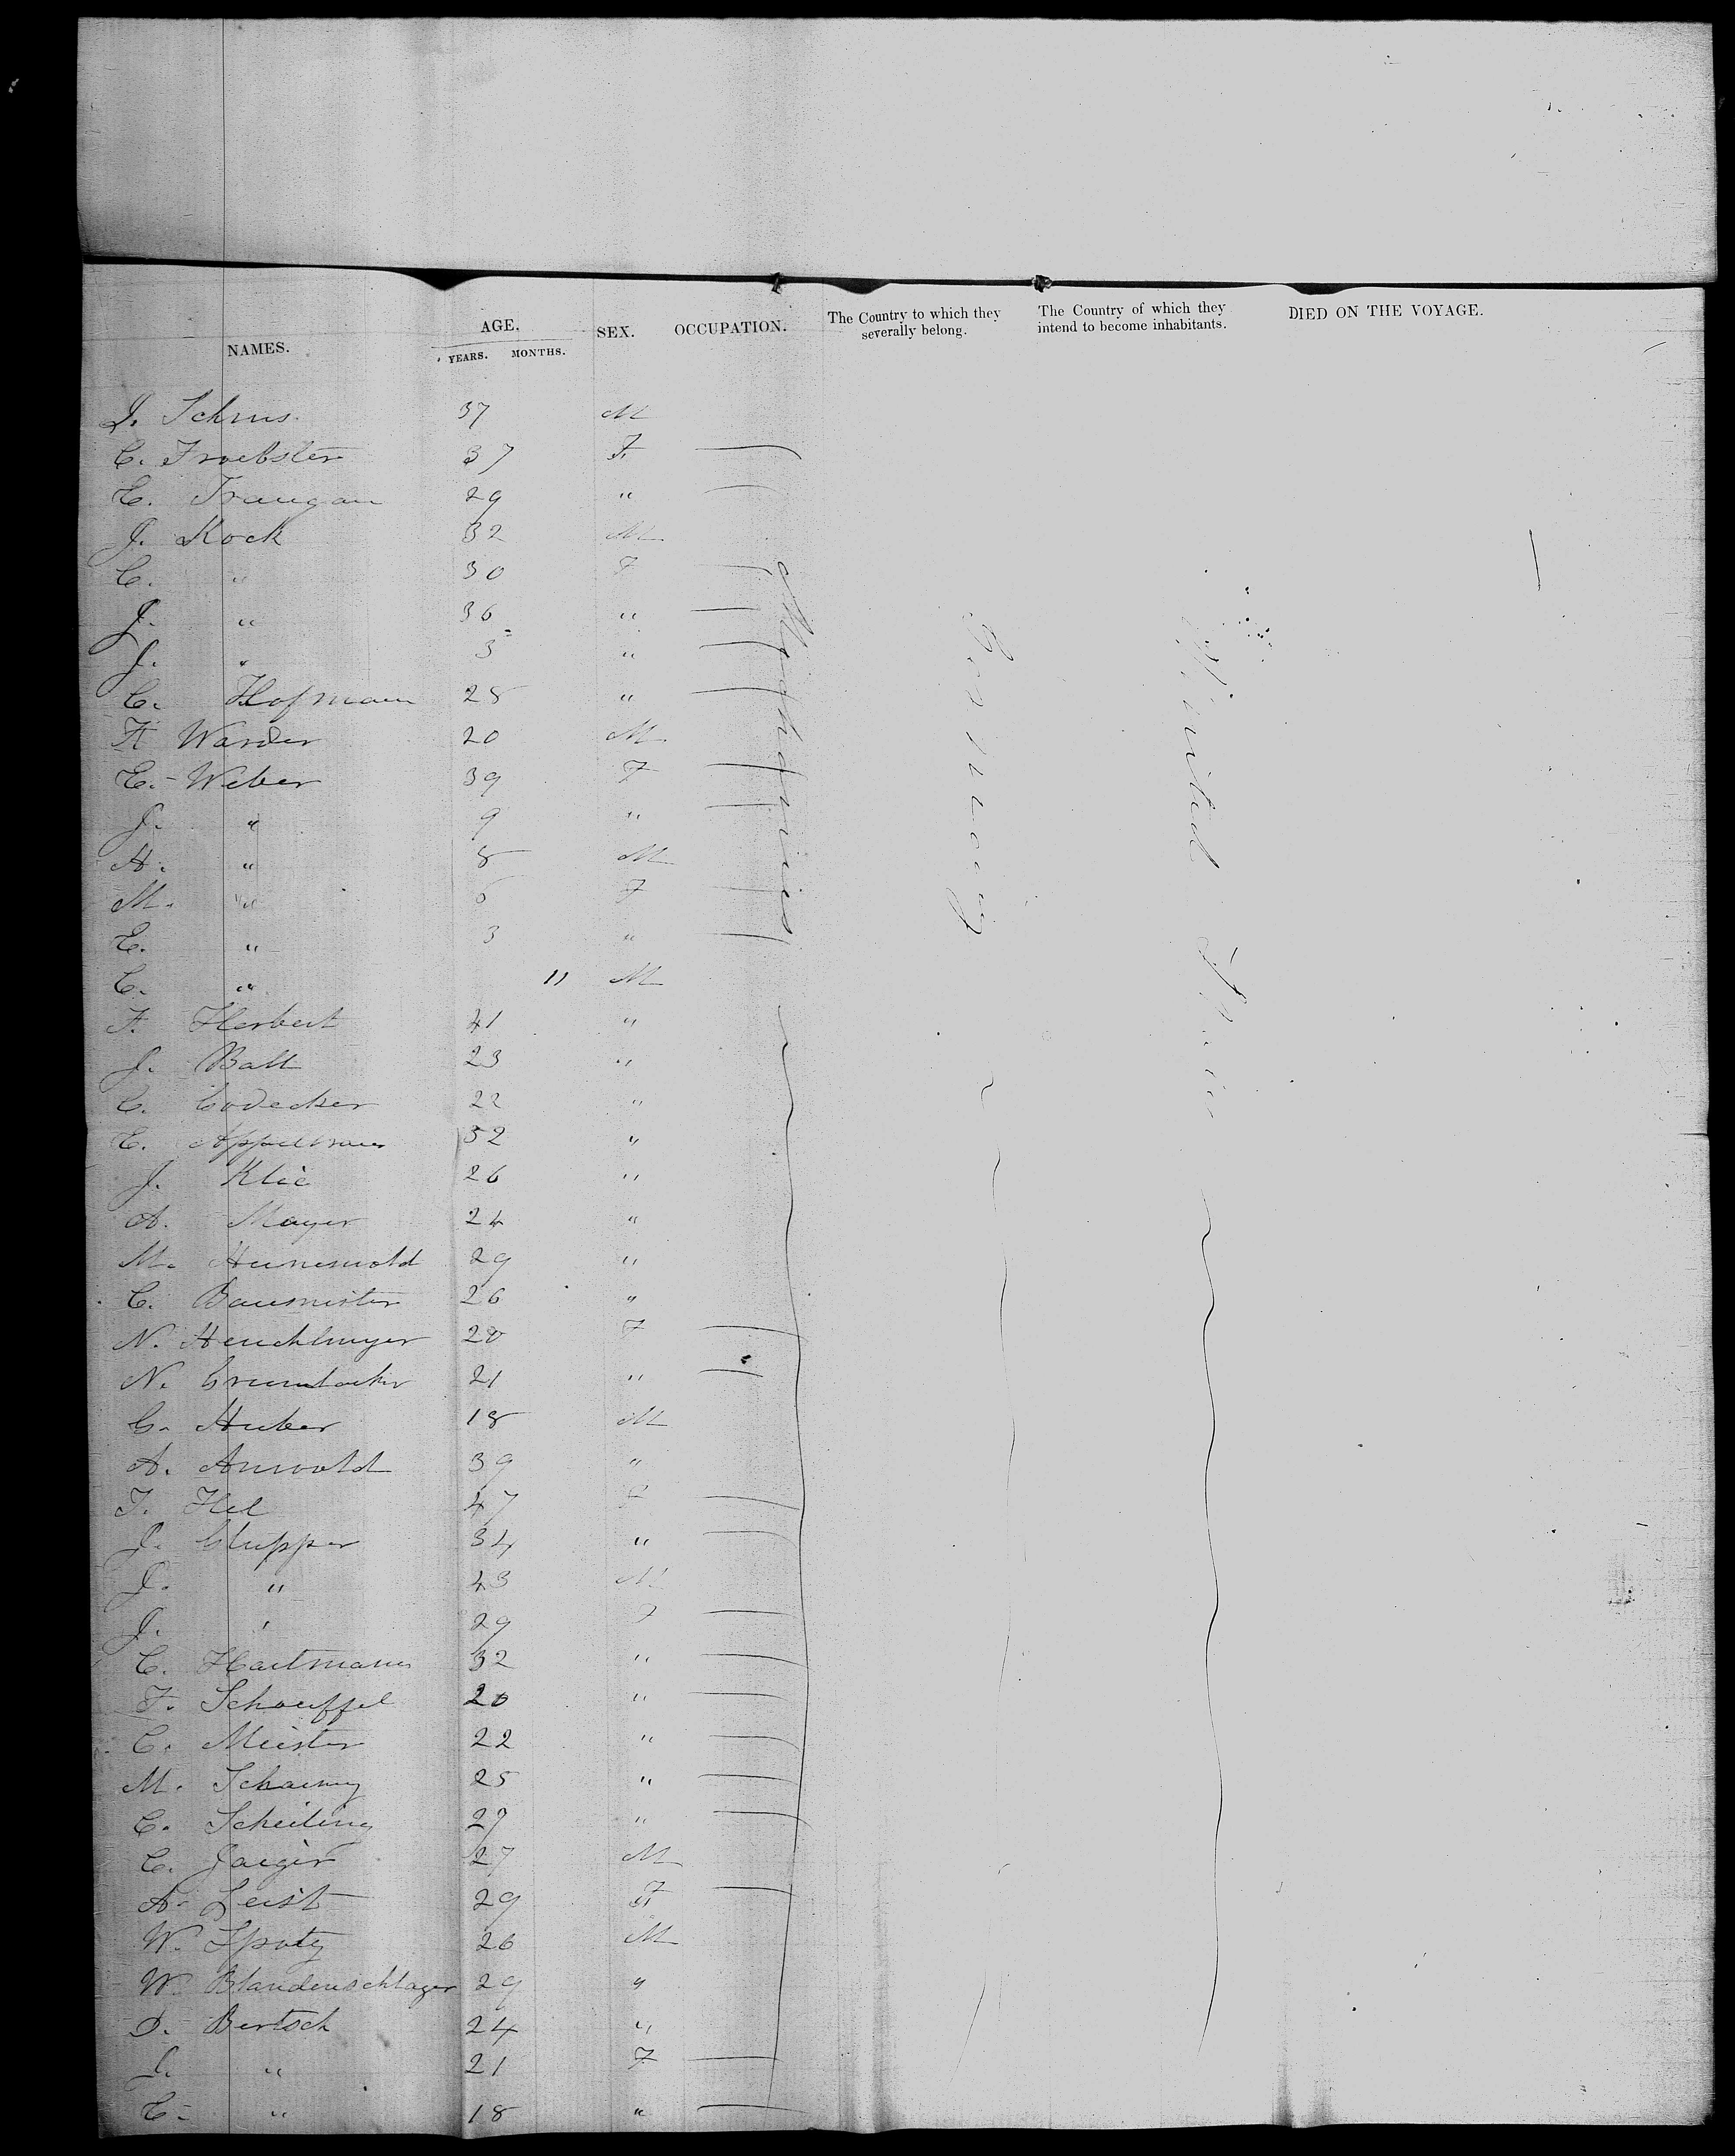 NAMES. AGE. SEX. OCCUPATION. The Country to which they severally belong. The Country of which they intend to become inhabitants. DIED ON THE VOYAGE.
YEARS. MONTHS.
J. 37 M
C. Froebster 37 F.
E. 29 "
J. Kock 32 M
C. " 30 F
J. " 36 "
J. " 3 "
C. Hofmann 25 "
F Warder 20 M
E. Weber 39 F
J. " 9 "
A. " 8 M
M. " 6 F
E. " 3 "
C. " 11 M
Mechanics
Germany
United States
F. Herbert 41 "
J. Ball 23 "
C. Codecker 22 "
E. 32 "
J. Klie 26 "
A. Mayer 24 "
M. Hunewold 29 "
C. Baumister 26 "
N. Heuchlmyer 28 F
N. 21 "
C. Huber 18 M
A. Anwold 39 "
T. Hel 47 F
J. Clupper 34 "
J. " 43 M
J. " 29 F
C. Hartmann 32 "
F. Schoeuffel 20 "
C. Meister 22 "
M. 25 "
C. Scheiling 27 "
C. Jaeger 27 M
A. Leist 29 F
W. Spoty 26 M
W. Blandenschlager 29 "
D. Bertsch 24 "
J. " 21 F
C. " 18 "